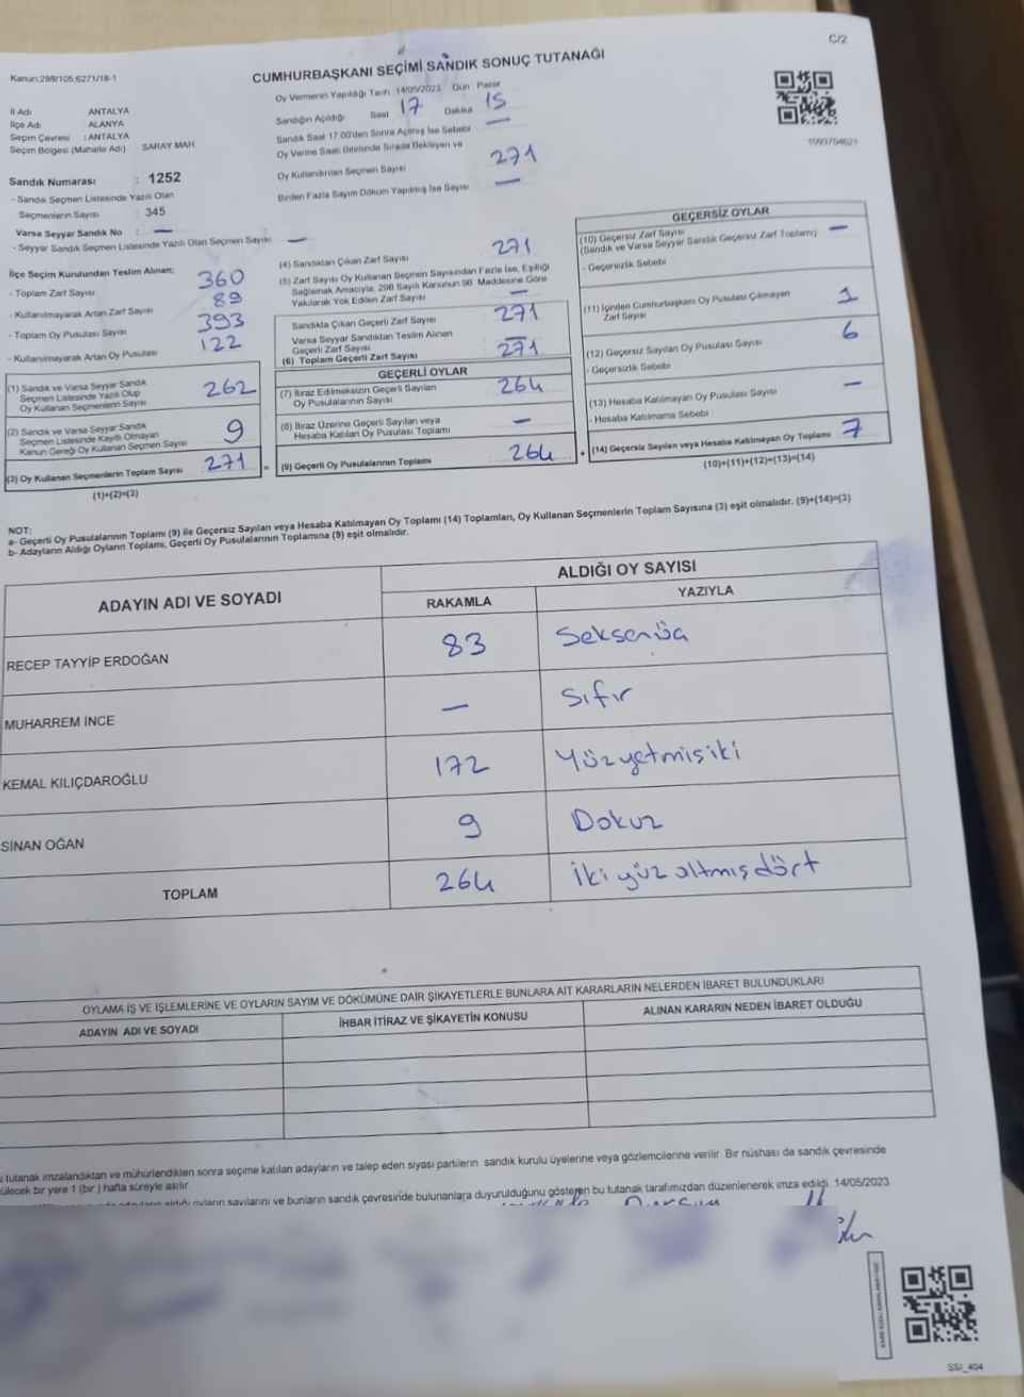 C/2
Kanun:298/105;6271/18-1
CUMHURBAŞKANI SEÇİMİ SANDIK SONUÇ TUTANAĞI
İl Adı ANTALYA
İlçe Adı ALANYA
Seçim Çevresi : ANTALYA
Seçim Bölgesi (Mahalle Adı) SARAY MAH
Sandık Numarası : 1252
- Sandık Seçmen Listesinde Yazılı Olan
Seçmenlerin Sayısı 345
Varsa Seyyar Sandık No : —
- Seyyar Sandık Seçmen Listesinde Yazılı Olan Seçmen Sayısı —
Oy Vermenin Yapıldığı Tarih 14/05/2023 Gün Pazar
Sandığın Açıldığı Saat 17 Dakika 15
Sandık Saat 17:00'den Sonra Açılmış İse Sebebi —
Oy Verme Saati Bitiminde Sırada Bekleyen ve
Oy Kullandırılan Seçmen Sayısı 271
Birden Fazla Sayım Döküm Yapılmış İse Sayısı —
İlçe Seçim Kurulundan Teslim Alınan:
- Toplam Zarf Sayısı 360
- Kullanılmayarak Artan Zarf Sayısı 89
- Toplam Oy Pusulası Sayısı 393
- Kullanılmayarak Artan Oy Pusulası 122
(1) Sandık ve Varsa Seyyar Sandık
Seçmen Listesinde Yazılı Olup
Oy Kullanan Seçmenlerin Sayısı 262
(2) Sandık ve Varsa Seyyar Sandık
Seçmen Listesinde Kayıtlı Olmayan
Kanun Gereği Oy Kullanan Seçmen Sayısı 9
(3) Oy Kullanan Seçmenlerin Toplam Sayısı 271 =
(1)+(2)=(3)
(4) Sandıktan Çıkan Zarf Sayısı 271
(5) Zarf Sayısı Oy Kullanan Seçmen Sayısından Fazla İse, Eşitliği
Sağlamak Amacıyla, 298 Sayılı Kanunun 98. Maddesine Göre
Yakılarak Yok Edilen Zarf Sayısı —
Sandıkta Çıkan Geçerli Zarf Sayısı 271
Varsa Seyyar Sandıktan Teslim Alınan
Geçerli Zarf Sayısı —
(6) Toplam Geçerli Zarf Sayısı 271
GEÇERLİ OYLAR
(7) İtiraz Edilmeksizin Geçerli Sayılan
Oy Pusulalarının Sayısı 264
(8) İtiraz Üzerine Geçerli Sayılan veya
Hesaba Katılan Oy Pusulası Toplamı —
(9) Geçerli Oy Pusulalarının Toplamı 264 +
GEÇERSİZ OYLAR
(10) Geçersiz Zarf Sayısı
(Sandık ve Varsa Seyyar Sandık Geçersiz Zarf Toplamı) —
- Geçersizlik Sebebi
(11) İçinden Cumhurbaşkanı Oy Pusulası Çıkmayan
Zarf Sayısı 1
(12) Geçersiz Sayılan Oy Pusulası Sayısı 6
- Geçersizlik Sebebi
(13) Hesaba Katılmayan Oy Pusulası Sayısı —
- Hesaba Katılmama Sebebi
(14) Geçersiz Sayılan veya Hesaba Katılmayan Oy Toplamı 7
(10)+(11)+(12)+(13)=(14)
NOT:
a- Geçerli Oy Pusulalarının Toplamı (9) ile Geçersiz Sayılan veya Hesaba Katılmayan Oy Toplamı (14) Toplamları, Oy Kullanan Seçmenlerin Toplam Sayısına (3) eşit olmalıdır. (9)+(14)=(3)
b- Adayların Aldığı Oyların Toplamı, Geçerli Oy Pusulalarının Toplamına (9) eşit olmalıdır.
ADAYIN ADI VE SOYADI ALDIĞI OY SAYISI
RAKAMLA YAZIYLA
RECEP TAYYİP ERDOĞAN 83 Seksenüç
MUHARREM İNCE — Sıfır
KEMAL KILIÇDAROĞLU 172 Yüzyetmişiki
SİNAN OĞAN 9 Dokuz
TOPLAM 264 İkiyüzaltmışdört
OYLAMA İŞ VE İŞLEMLERİNE VE OYLARIN SAYIM VE DÖKÜMÜNE DAİR ŞİKAYETLERLE BUNLARA AİT KARARLARIN NELERDEN İBARET BULUNDUKLARI
ADAYIN ADI VE SOYADI İHBAR İTİRAZ VE ŞİKAYETİN KONUSU ALINAN KARARIN NEDEN İBARET OLDUĞU
tutanak imzalandıktan ve mühürlendikten sonra seçime katılan adayların ve talep eden siyasi partilerin sandık kurulu üyelerine veya gözlemcilerine verilir. Bir nüshası da sandık çevresinde
bir yere 1 (bir) hafta süreyle asılır.
oyların sayılarını ve bunların sandık çevresinde bulunanlara duyurulduğunu gösteren bu tutanak tarafımızdan düzenlenerek imza edildi. 14/05/2023
SSI_404